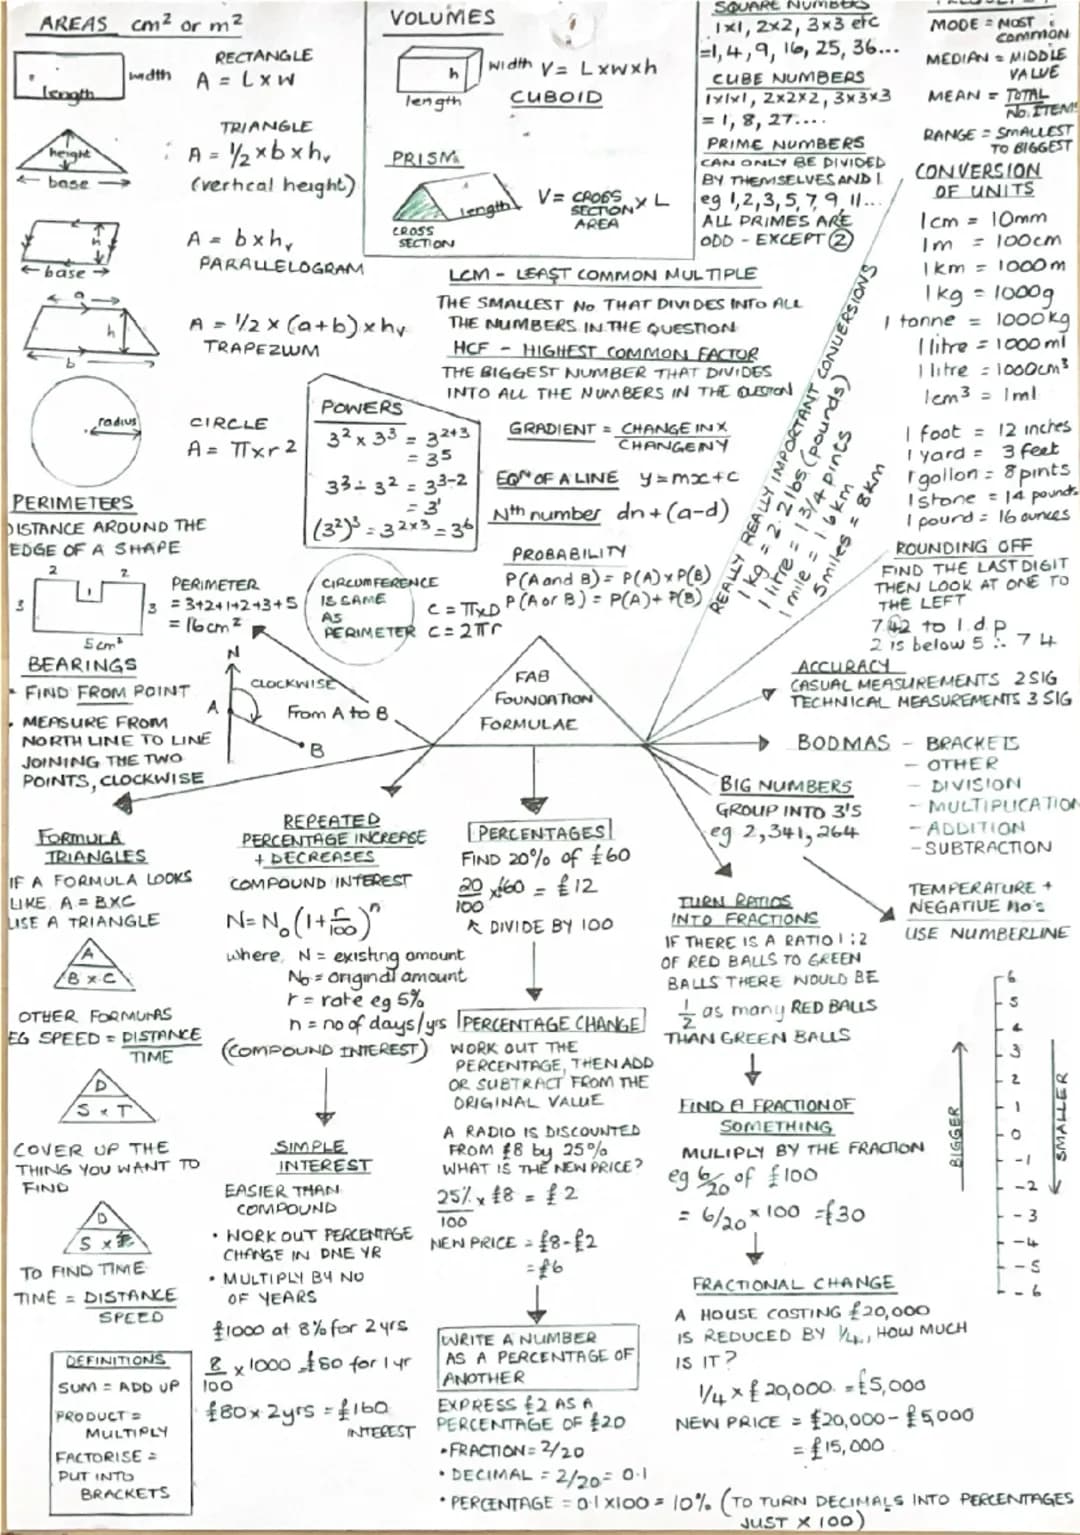 AREAS cm² or m²
length
width
RECTANGLE
A = L x W
height
base
TRIANGLE
A = ½ x b x hᵥ
(vertical height)
h
base
A = b x hᵥ
PARALLELOGRAM
a
h
b
A = 1/2 x (a+b) x hᵥ
TRAPEZIUM
radius
CIRCLE
A = π x r 2
PERIMETERS
DISTANCE AROUND THE
EDGE OF A SHAPE
2 2
1
3 3
5cm²
PERIMETER
= 3+2+1+2+3+5
= 16cm²
VOLUMES
h
width
length
V = L x w x h
CUBOID
PRISM
length
CROSS
SECTION
V = CROSS SECTION AREA x L
SQUARE NUMBERS
1x1, 2x2, 3x3 etc
=1, 4, 9, 16, 25, 36...
CUBE NUMBERS
1x1x1, 2x2x2, 3x3x3
= 1, 8, 27....
PRIME NUMBERS
CAN ONLY BE DIVIDED
BY THEMSELVES AND 1
eg 1, 2, 3, 5, 7, 9, 11...
ALL PRIMES ARE
ODD - EXCEPT 2
MODE = MOST
COMMON
MEDIAN = MIDDLE
VALUE
MEAN = TOTAL
No. ITEMS
RANGE = SMALLEST
TO BIGGEST
CONVERSION
OF UNITS
1cm = 10mm
1m = 100cm
1km = 1000m
1kg = 1000g
1 tonne = 1000kg
1 litre = 1000ml
1 litre = 1000cm³
1cm³ = 1ml
1 foot = 12 inches
1 yard = 3 feet
1 gallon = 8 pints
1 stone = 14 pounds
1 pound = 16 ounces
LCM - LEAST COMMON MULTIPLE
THE SMALLEST No THAT DIVIDES INTO ALL
THE NUMBERS IN THE QUESTION
HCF - HIGHEST COMMON FACTOR
THE BIGGEST NUMBER THAT DIVIDES
INTO ALL THE NUMBERS IN THE QUESTION
POWERS
3² x 3³ = 3²⁺³
= 3⁵
3³ ÷ 3² = 3³⁻²
= 3¹
(3²)³ = 3²ˣ³ = 3⁶
GRADIENT = CHANGE IN X
CHANGE IN Y
EQᴺ OF A LINE y=mx+c
Nth number dn+(a-d)
PROBABILITY
P(A and B) = P(A) x P(B)
P(A or B) = P(A) + P(B)
CIRCUMFERENCE
IS SAME
AS
PERIMETER
C = πxD
C = 2πr
REALLY REALLY IMPORTANT CONVERSIONS
1kg = 2.2lbs (pounds)
1 litre = 1 3/4 PINTS
1 mile = 1.6 km
5 miles = 8km
ROUNDING OFF
FIND THE LAST DIGIT
THEN LOOK AT ONE TO
THE LEFT
7.42 to 1.d.p
2 is below 5 ∴ 7 4
ACCURACY
CASUAL MEASUREMENTS 2 SIG
TECHNICAL MEASUREMENTS 3 SIG
BEARINGS
• FIND FROM POINT
• MEASURE FROM
NORTH LINE TO LINE
JOINING THE TWO
POINTS, CLOCKWISE
N
CLOCKWISE
A
From A to B
B
FAB
FOUNDATION
FORMULAE
BODMAS - BRACKETS
- OTHER
- DIVISION
- MULTIPLICATION
- ADDITION
- SUBTRACTION
BIG NUMBERS
GROUP INTO 3'S
eg 2,341,264
TEMPERATURE +
NEGATIVE No's
USE NUMBERLINE
6
5
4
3
2
1
0
-1
-2
-3
-4
-5
-6
BIGGER
SMALLER
FORMULA
TRIANGLES
IF A FORMULA LOOKS
LIKE A = BXC
USE A TRIANGLE
A
B x C
OTHER FORMULAS
EG SPEED = DISTANCE
TIME
D
S x T
COVER UP THE
THING YOU WANT TO
FIND
D
S x
TO FIND TIME
TIME = DISTANCE
SPEED
DEFINITIONS
SUM = ADD UP
PRODUCT =
MULTIPLY
FACTORISE =
PUT INTO
BRACKETS
REPEATED
PERCENTAGE INCREASE
+ DECREASES
COMPOUND INTEREST
N = N₀ (1 + r/100)ⁿ
where, N = existing amount
N₀ = original amount
r = rate eg 5%
n = no of days/yrs
(COMPOUND INTEREST)
SIMPLE
INTEREST
EASIER THAN
COMPOUND
• WORK OUT PERCENTAGE
CHANGE IN ONE YR
• MULTIPLY BY NO
OF YEARS
£1000 at 8% for 2yrs
8/100 x 1000 = £80 for 1yr
£80 x 2yrs = £160
INTEREST
PERCENTAGES
FIND 20% of £60
20/100 x £60 = £12
DIVIDE BY 100
PERCENTAGE CHANGE
WORK OUT THE
PERCENTAGE, THEN ADD
OR SUBTRACT FROM THE
ORIGINAL VALUE
A RADIO IS DISCOUNTED
FROM £8 by 25%
WHAT IS THE NEW PRICE?
25%/100 x £8 = £2
NEW PRICE = £8-£2
= £6
WRITE A NUMBER
AS A PERCENTAGE OF
ANOTHER
EXPRESS £2 AS A
PERCENTAGE OF £20
• FRACTION = 2/20
• DECIMAL = 2/20 = 0.1
• PERCENTAGE = 0.1 x 100 = 10% (TO TURN DECIMALS INTO PERCENTAGES
JUST X 100)
TURN RATIOS
INTO FRACTIONS
IF THERE IS A RATIO 1:2
OF RED BALLS TO GREEN
BALLS THERE WOULD BE
1/2 as many RED BALLS
THAN GREEN BALLS
FIND A FRACTION OF
SOMETHING
MULIPLY BY THE FRACTION
eg 6/20 of £100
= 6/20 x 100 = £30
FRACTIONAL CHANGE
A HOUSE COSTING £20,000
IS REDUCED BY 1/4, HOW MUCH
IS IT?
1/4 x £20,000 = £5,000
NEW PRICE = £20,000 - £5,000
= £15,000